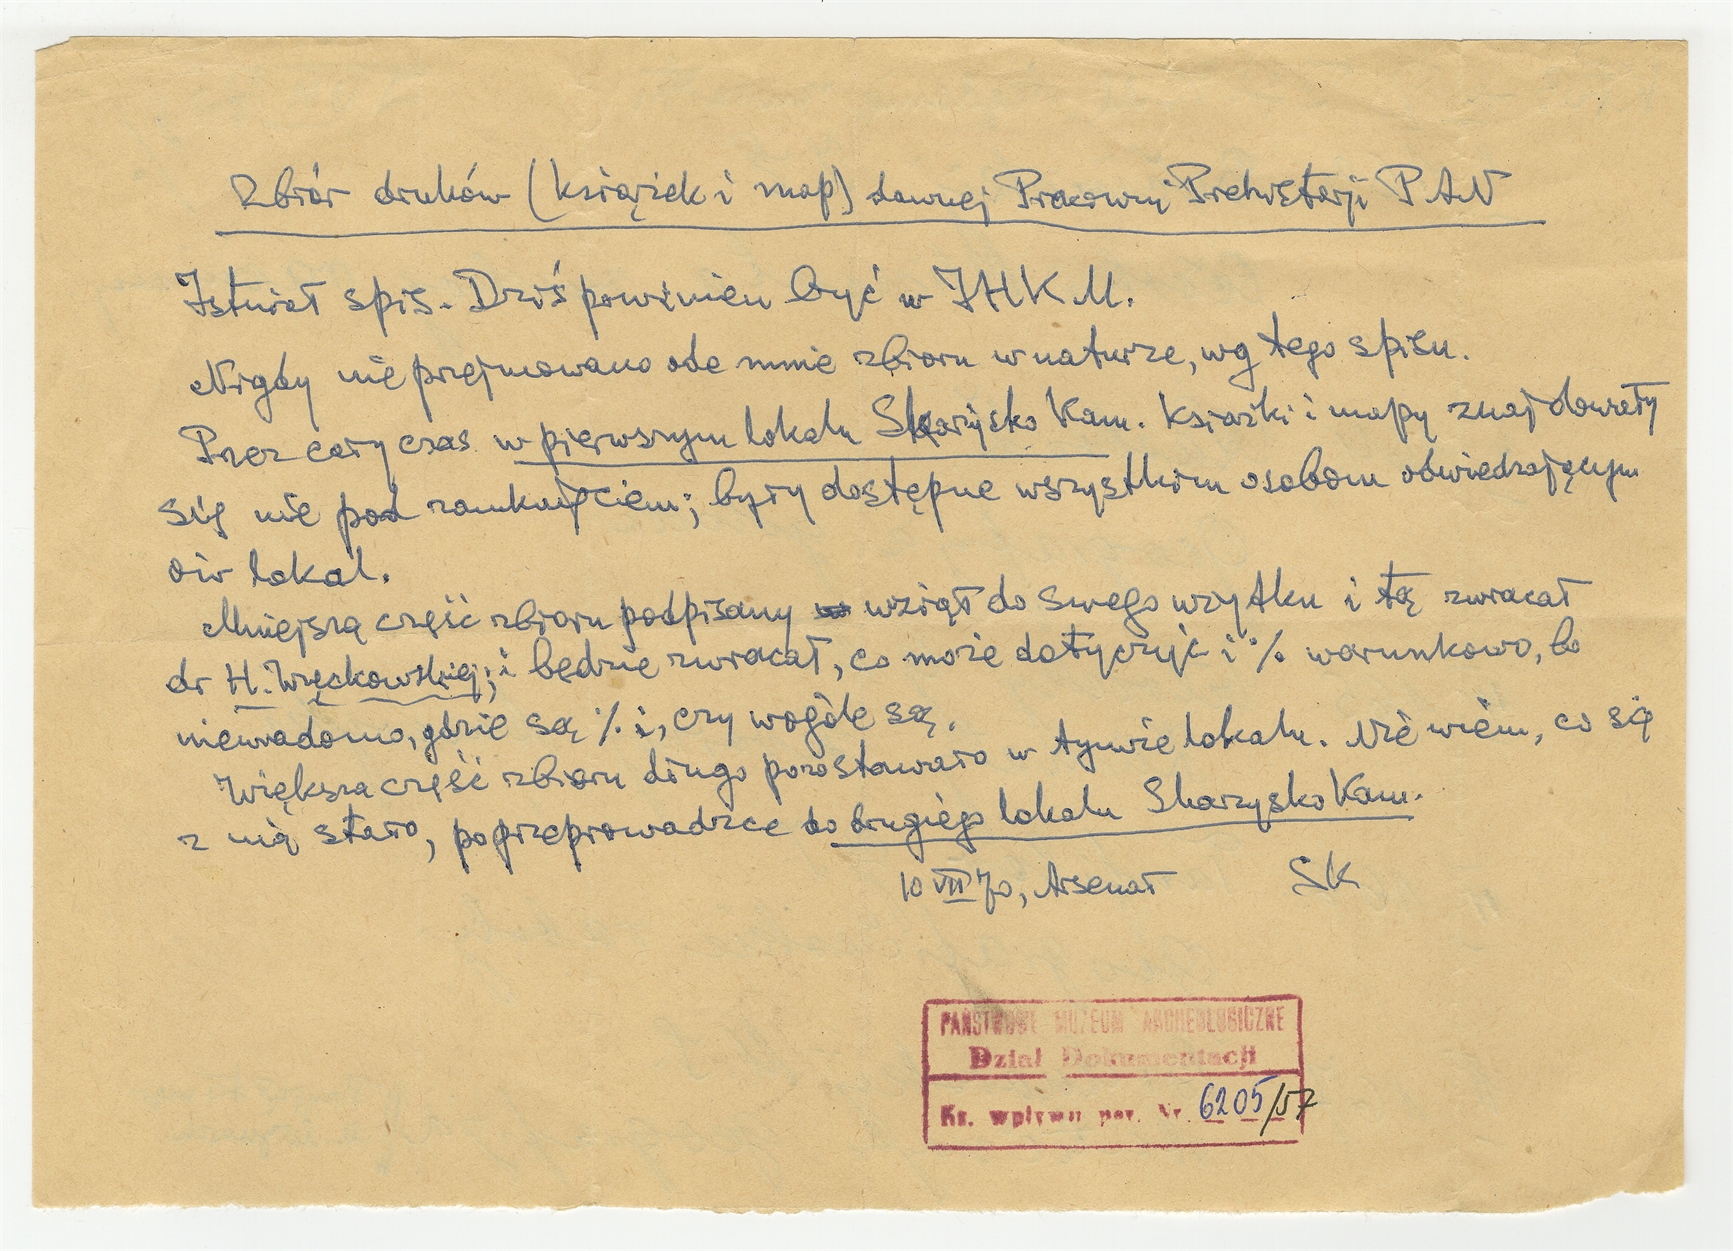 Zbiór druków (książek i map) dawnej Pracowni Prehistorji PAN
Istniał spis. Dziś powinien być w IHKM.
Nigdy nie przejmowano ode mnie zbioru w naturze, wg tego spisu.
Przez cały czas w pierwszym lokalu Skarżysko Kam. książki i mapy znajdowały
się nie pod zamknięciem; były dostępne wszystkim osobom odwiedzającym
ów lokal.
Mniejszą część zbioru podpisany wziął do swego użytku i tą zwracał
dr H. Więckowskiej; i będzie zwracał, co może dotyczyć i % warunkowo, bo
niewiadomo, gdzie są % i, czy wogóle są.
Większa część zbioru długo pozostawało w tymże lokalu. Nie wiem, co się
z nią stało, po przeprowadzce do drugiego lokalu Skarzysko Kam.
10 VII 70, Arsenał SK
PAŃSTWOWE MUZEUM ARCHEOLOGICZNE
Dział Dokumentacji
Ks. wpływu por. Nr. 6205/57